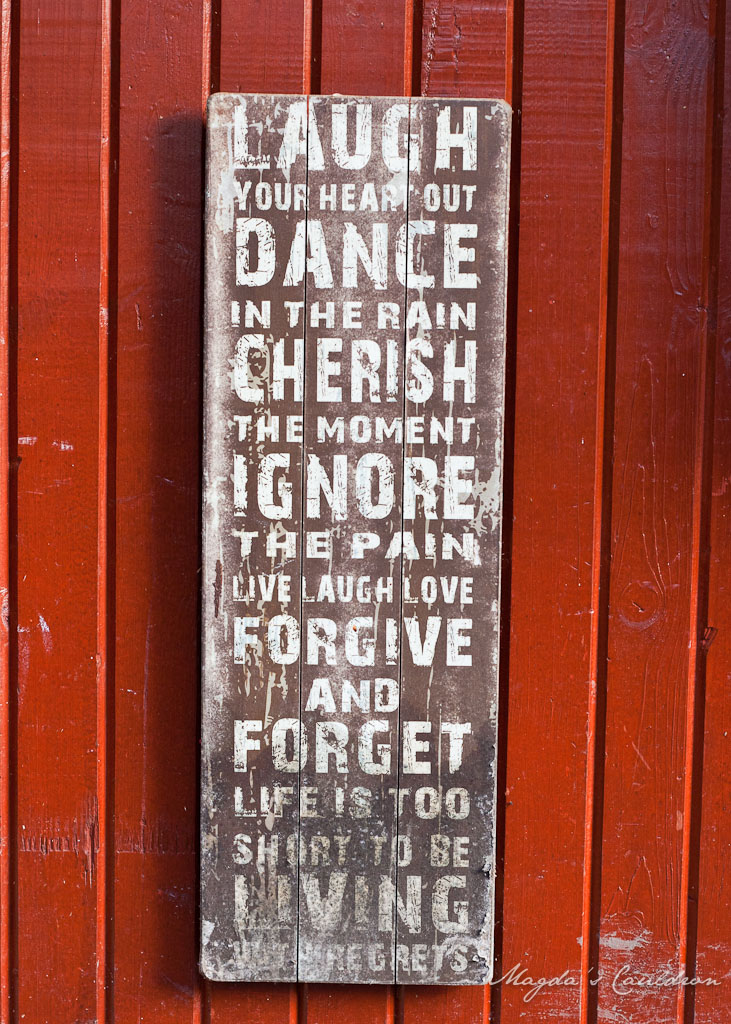 LAUGH
YOUR HEART OUT
DANCE
IN THE RAIN
CHERISH
THE MOMENT
IGNORE
THE PAIN
LIVE LAUGH LOVE
FORGIVE
AND
FORGET
LIFE IS TOO
SHORT TO BE
LIVING
WITH REGRETS
Magda's Cauldron